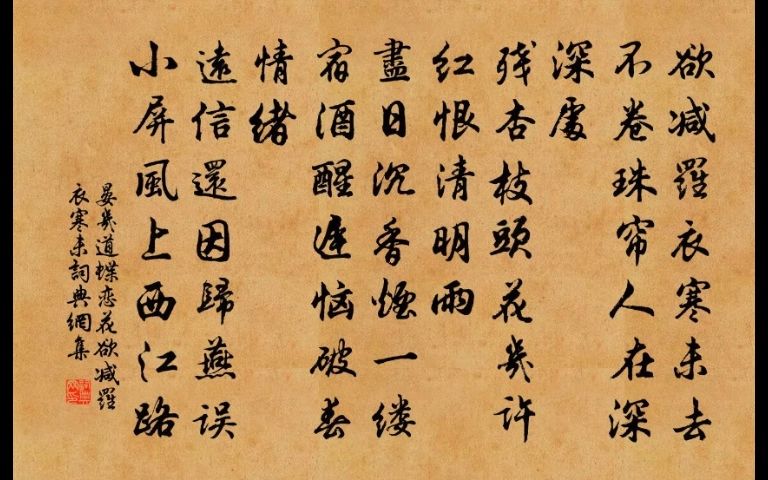 欲减羅衣寒未去
不卷珠帘人在深
深處
残杏枝頭花幾許
红恨清明雨
盡日沉香煙一缕
宿酒醒遲恼破春
情緒
遠信還因歸燕误
小屏風上西江路
晏幾道蝶恋花欲减羅
衣寒未詞典網集